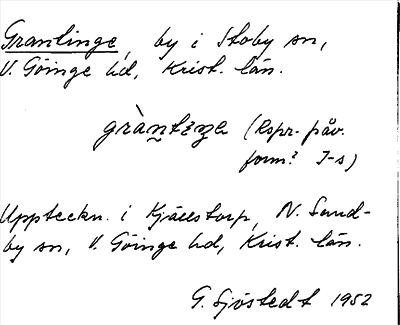 Grantinge, by i Stoby sn,
V. Göinge hd, Krist. län.
gràntiŋe (Rspr-påv.
form? I-s)
Uppteckn. i Kjällstorp, N. Sand-
by sn, V. Göinge hd, Krist. län.
G. Sjöstedt 1952